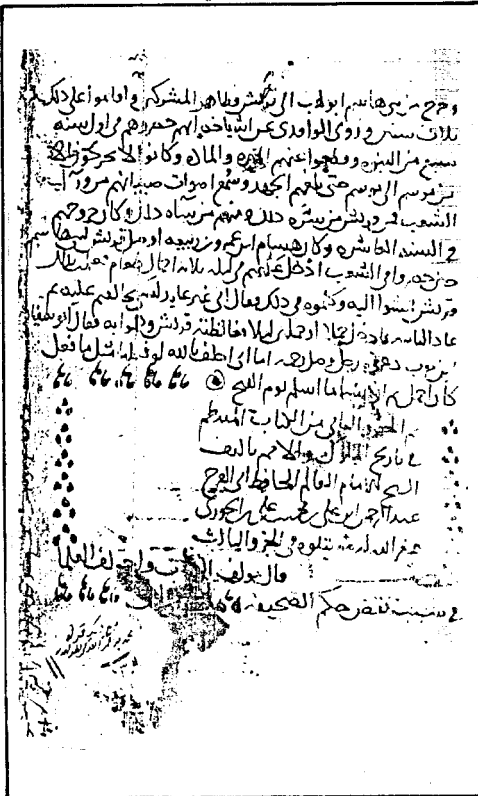 وخرج من بني هاشم ابو لهب الى قريش وظاهر المشركين واقاموا على ذلك
ثلاث سنين وروى الواقدي عن اشياخه انهم حصروهم في اول سنة
سبع من النبوة وقطعوا عنهم الميرة والمادة وكانوا لا يخرجون الا
من موسم الى موسم حتى بلغهم الجهد وسمع اصوات صبيانهم من ورآ
الشعب فمن قريش من سره ذلك ومنهم من ساه ذلك وكان خروجهم
في السنة العاشرة وكان هشام ابن عمرو بن ربيعة اوصل قريش لبني هاشم
حين حصروا في الشعب ادخل عليهم في ليلة ثلاثة احمال طعام فعلمت بذلك
قريش فمشوا اليه وكلموه في ذلك فقال اني غير عايد لشي خالفكم عليه ثم
عاد الثانية فادخل حملا او حملين ليلا فغالظته قريش وهموا به فقال ابو سفيان
بن حرب دعوه رجل وصل رحمه اما اني احلف بالله لو فعلنا مثل ما فعل
كان اجمل بنا ثم ان هشاما اسلم يوم الفتح
اخر الجزو الثاني من الكتاب المنتظم
في تاريخ الملوك والامم تاليف
الشيخ الامام العالم الحافظ ابي الفرج
عبد الرحمن ابن علي بن محمد بن علي بن الجوزي
غفر الله له يتلوه في الجزو الثالث
قال مولف الكتاب واختلف العلما
في سبب نقض حكم الصحيفة